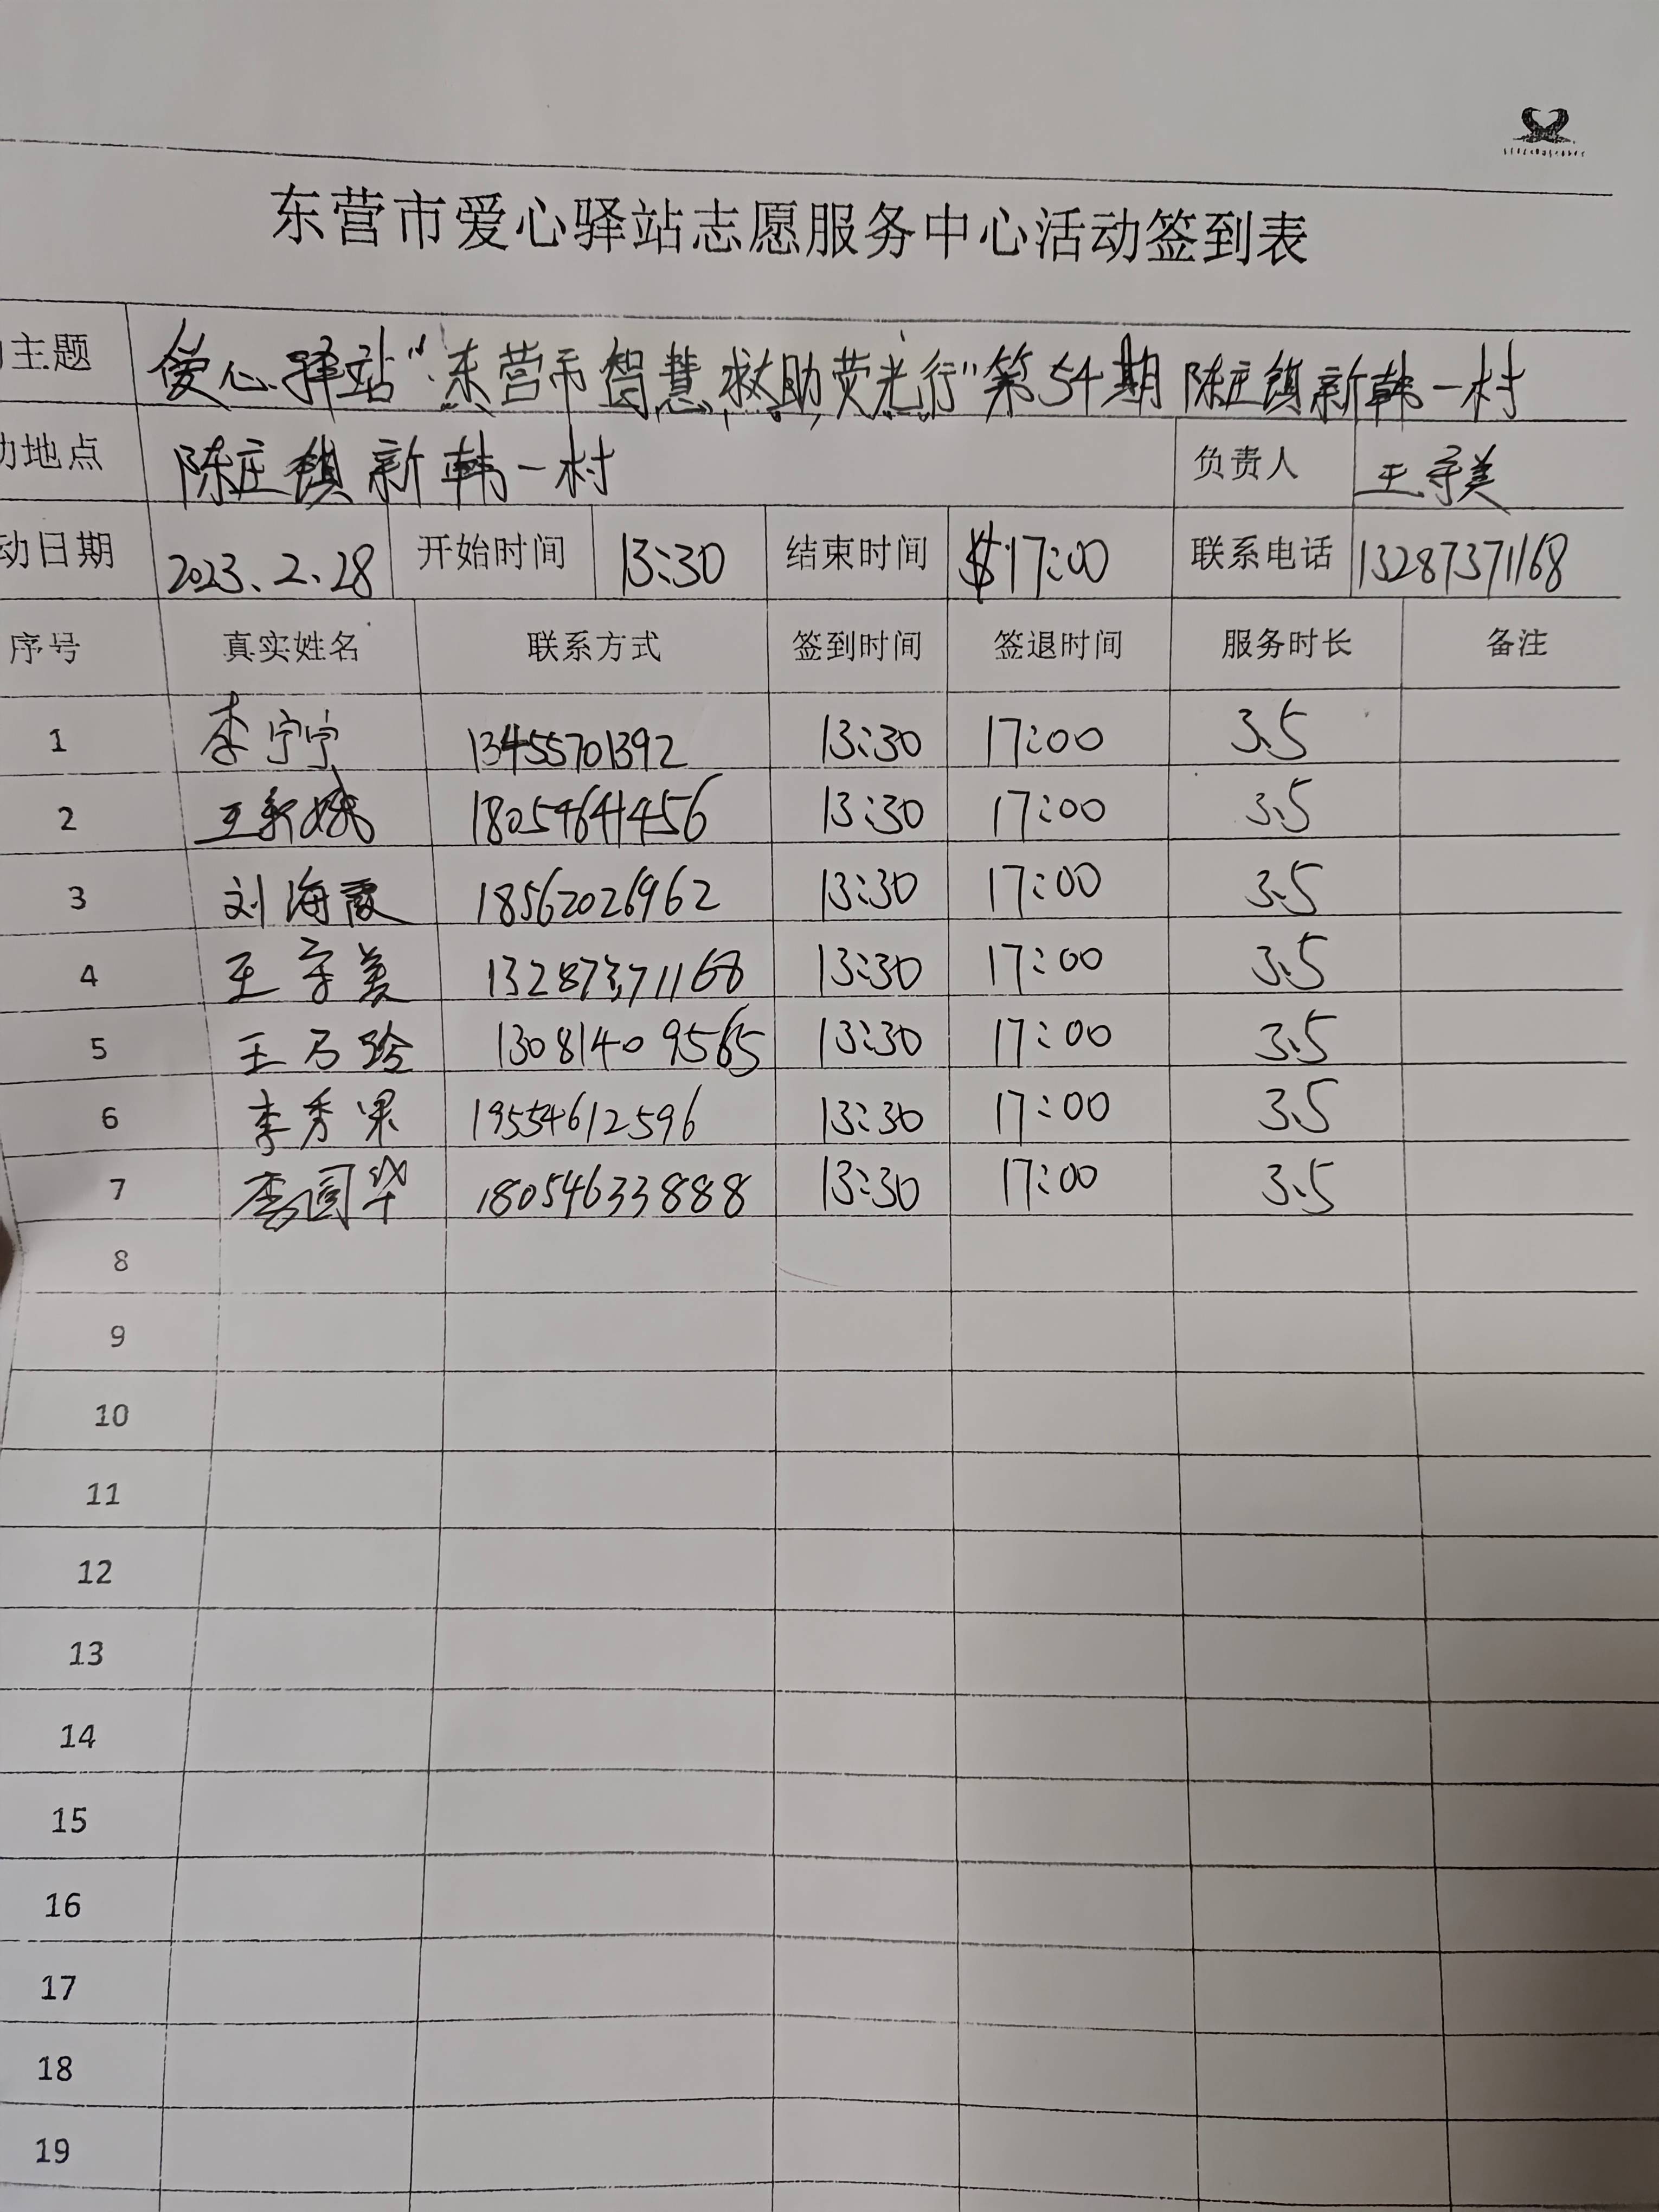 东营市爱心驿站志愿服务中心活动签到表
主题 爱心驿站“东营市智慧救助荧光行”第54期陈庄镇新韩一村
地点 陈庄镇新韩一村 负责人 王守美
动日期 2023.2.28 开始时间 13:30 结束时间 17:00 联系电话 13287371168
序号 真实姓名 联系方式 签到时间 签退时间 服务时长 备注
1 李宁宁 13455701392 13:30 17:00 3.5
2 王新娥 18054641456 13:30 17:00 3.5
3 刘海霞 18562026962 13:30 17:00 3.5
4 王守美 13287371168 13:30 17:00 3.5
5 王万玲 13081409565 13:30 17:00 3.5
6 李秀果 19554612596 13:30 17:00 3.5
7 李国华 18054633888 13:30 17:00 3.5
8
9
10
11
12
13
14
15
16
17
18
19